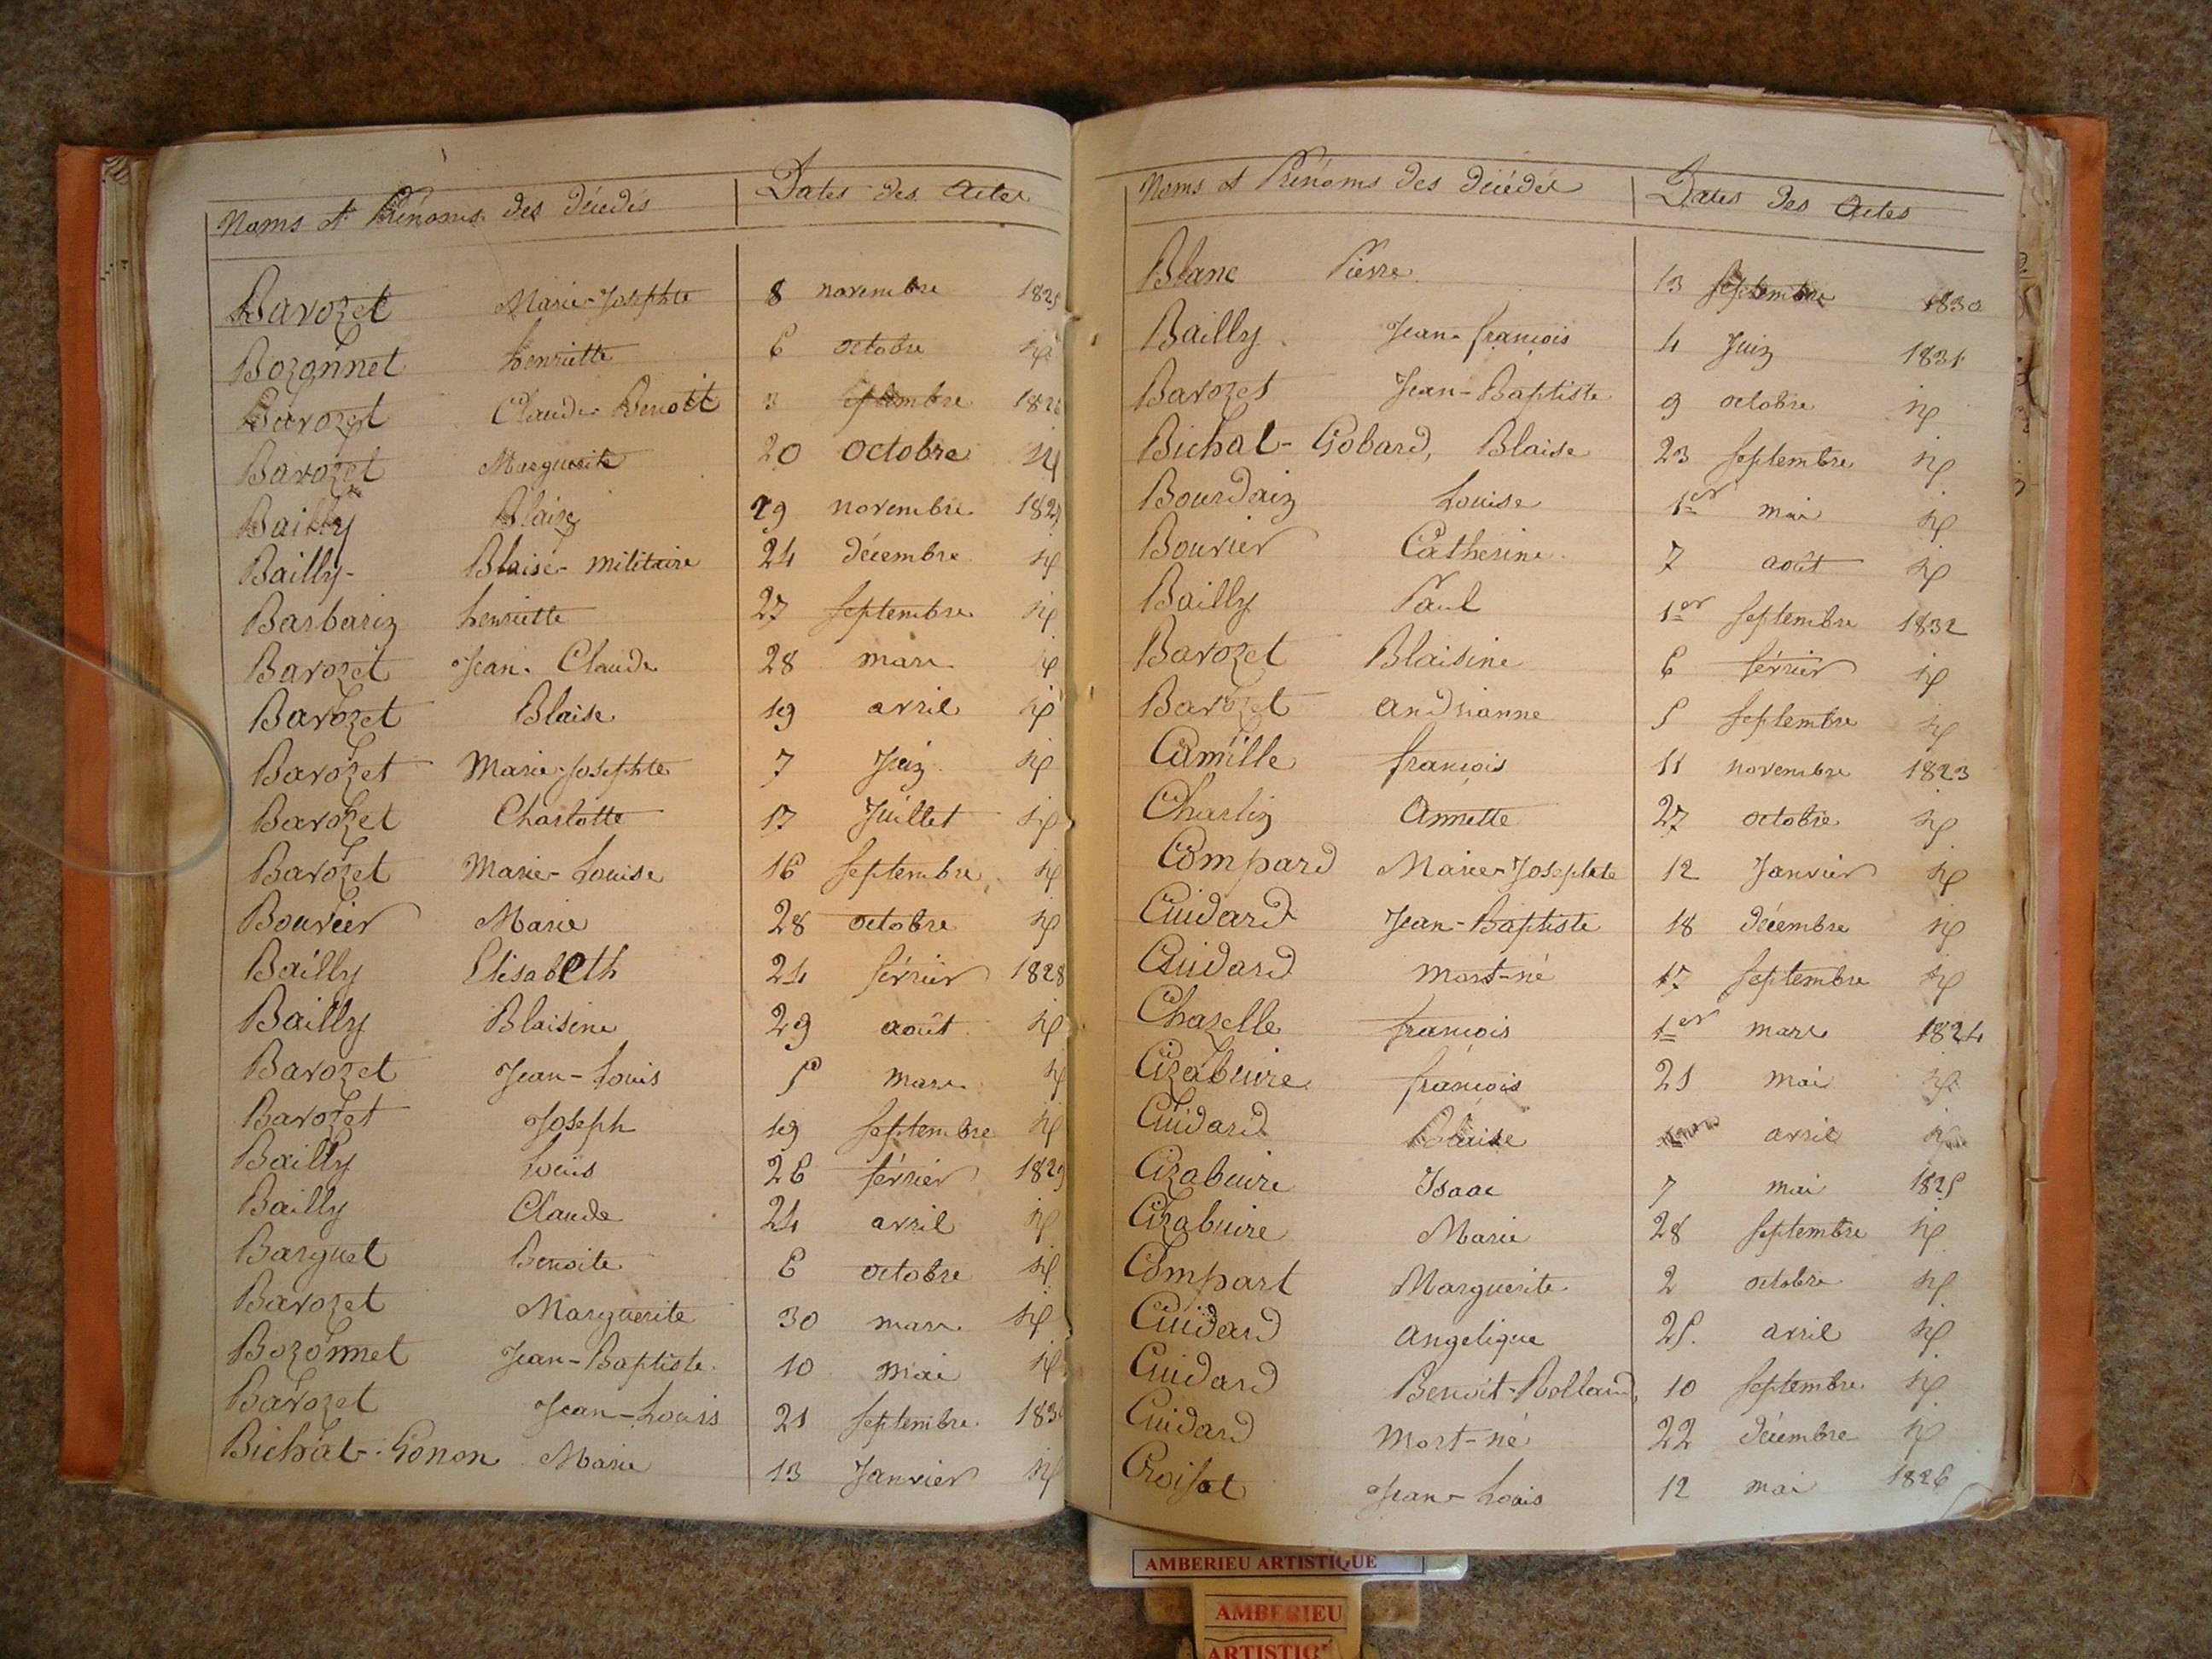 Noms et Prénoms des décédés Dates des Actes
Barozet Marie-Josephte 8 novembre 1825
Bozonnet henriette 6 octobre id
Barozet Claude Benoit 3 septembre 1826
Barozet Marguerite 20 octobre id
Bailly Blaise 29 novembre 182
Bailly- Blaise- militaire 24 décembre id
Barbarin henriette 27 septembre id
Barozet Jean-Claude 28 mars id
Barozet Blaise 19 avril id
Barozet Marie-Josephte 7 Juin id
Barozet Charlotte 17 Juillet id
Barozet Marie-Louise 16 septembre id
Bouvier Marie 28 octobre id
Bailly Elisabeth 24 février 1828
Bailly Blaisine 29 août id
Barozet Jean-Louis 5 mars id
Barozet Joseph 19 septembre id
Bailly Louis 26 février 1829
Bailly Claude 24 avril id
Barguet Benoite 6 octobre id
Barozet Marguerite 30 mars id
Bozonnet Jean-Baptiste 10 mai id
Barozet Jean-Louis 21 septembre 183
Bichat-Gonon Marie 13 Janvier id
Noms et Prénoms des décédés Dates des Actes
Blanc Pierre 13 septembre 1830
Bailly Jean-françois 4 Juin 1831
Barozet Jean-Baptiste 9 octobre id
Bichat-Gobard, Blaise 23 septembre id
Bourdain Louise 1er mai id
Bouvier Catherine 7 août id
Bailly Paul 1er septembre 1832
Barozet Blaisine 6 février id
Barozet andrianne 5 septembre id
Camille françois 11 novembre 1823
Charlin Annette 27 octobre id
Compard Marie-Josephte 12 Janvier id
Cuidard Jean-Baptiste 18 décembre id
Cuidard mort-né 17 septembre id
Chazelle françois 1er mars 1824
Cizabuire françois 21 mai id
Cuidard Blaise avril id
Cizabuire Isaac 7 mai 1825
Cizabuire Marie 28 septembre id
Compart Marguerite 2 octobre id
Cuidard angelique 25. avril id
Cuidard Benoit-Rolland, 10 septembre id
Cuidard Mort-né 22 décembre id
Croisat Jean-Louis 12 mai 1826
AMBERIEU ARTISTIQUE
AMBERIEU
ARTISTIQ